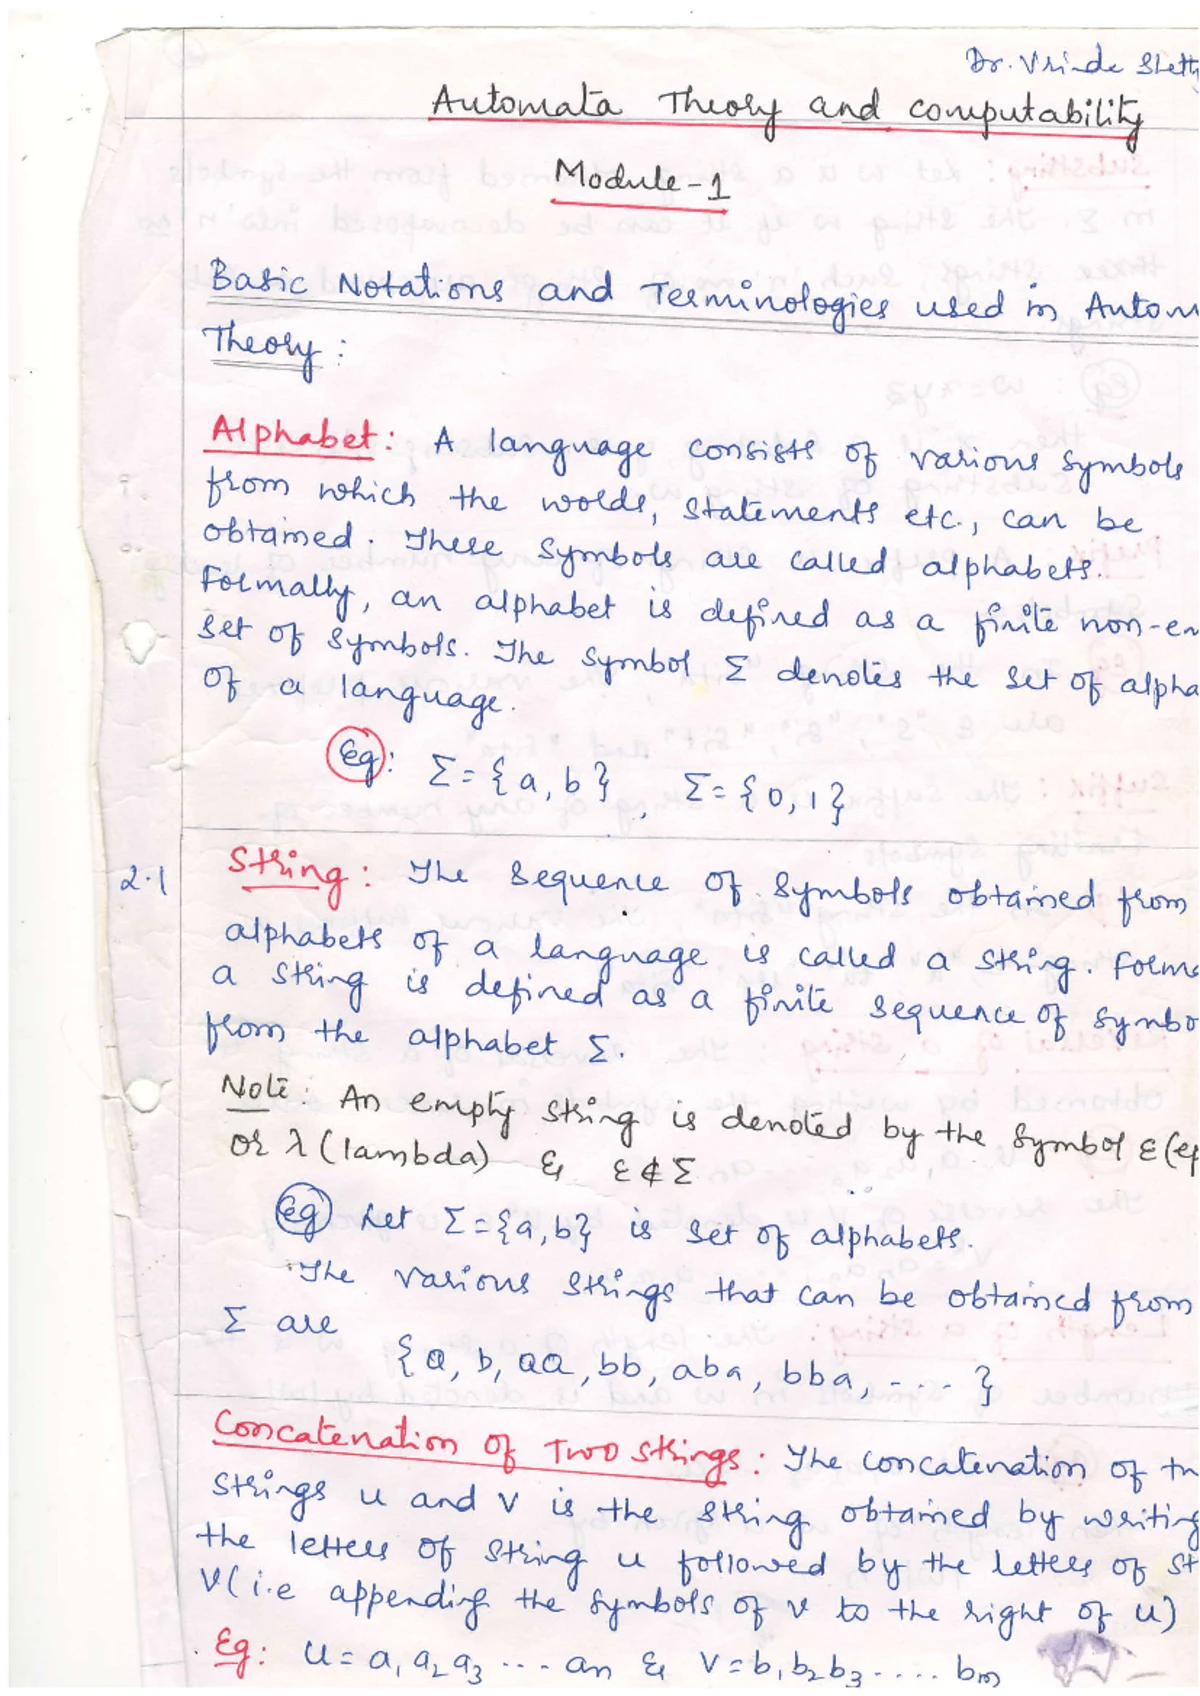 Dr. Vrinda Shett
Automata Theory and computability
Module-1
Basic Notations and Terminologies used in Autom
Theory:
Alphabet: A language consists of various symbols
from which the words, statements etc., can be
obtained. These symbols are called alphabets.
Formally, an alphabet is defined as a finite non-em
set of symbols. The symbol Σ denotes the set of alpha
of a language.
Eg: Σ={a,b}, Σ={0,1}
2.1 String: The sequence of symbols obtained from
alphabets of a language is called a string. Forma
a string is defined as a finite sequence of symbo
from the alphabet Σ.
Note: An empty string is denoted by the symbol ε(ep
or λ(lambda) & ε∉Σ
eg Let Σ={a,b} is set of alphabets.
The various strings that can be obtained from
Σ are
{a, b, aa, bb, aba, bba, - - - - }
Concatenation of Two strings: The concatenation of tw
strings u and v is the string obtained by writing
the letters of string u followed by the letters of st
v(i.e appending the symbols of v to the right of u)
Eg: u=a₁a₂a₃ ... an & v=b₁b₂b₃.... bm